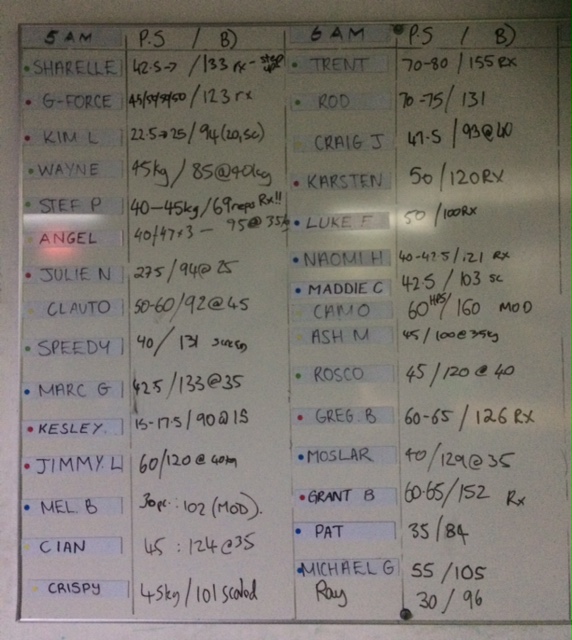 5 AM P.S / B)
SHARELLE 42.5→ /133 rx-
G-FORCE /123 rx
KIM L 22.5→25 / 94(20, SC)
WAYNE 45kg / 85@40kg
STEF P 40-45kg/69reps Rx!!
ANGEL 40/47x3 - 95@35kg
JULIE N 27.5/94@25
CLAUTO 50-60/92@45
SPEEDY 40/ 131
MARC G 42.5/133@35
KESLEY. 15-17.5/90@15
JIMMY. L 60/120@40kg
MEL. B 30 : 102 (MOD).
CIAN 45 : 124@35
CRISPY 45kg/101 scaled
6 AM P.S / B)
TRENT 70-80/155 Rx
ROD 70-75/131
CRAIG J 47.5/93@40
KARSTEN 50/120RX
LUKE F 50/100RX
NAOMI H 40-42.5/121 RX
MADDIE C 42.5/103 SC
CAMO 60/160 MOD
ASH M 45/100@35kg
ROSCO 45/120@40
GREG. B 60-65/126 RX
MOSLAR 40/129@35
GRANT B 60-65/152 Rx
PAT 35/84
MICHAEL G 55/105
Ray 30/96